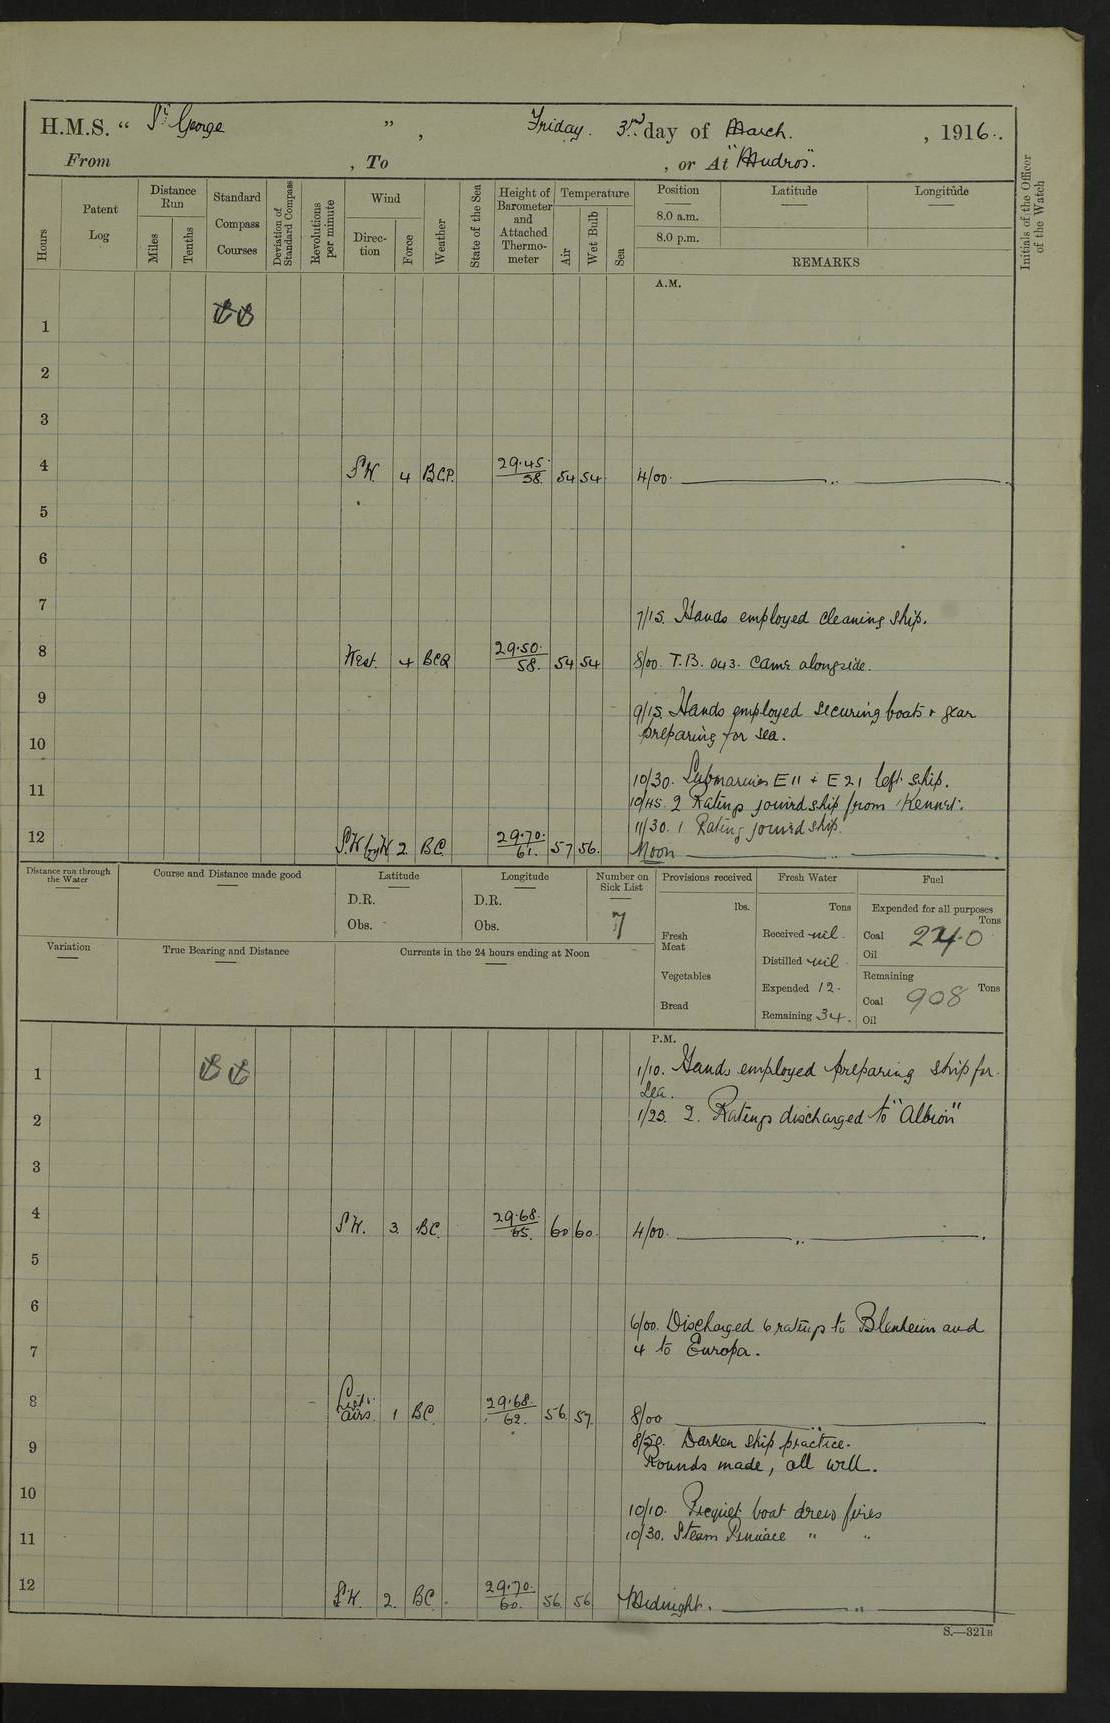 H.M.S. " St George ", Friday. 3rd day of March. , 1916.
From , To , or At "Mudros".
Hours
Patent Log
Distance Run
Miles
Tenths
Standard Compass Courses
Deviation of Standard Compass
Revolutions per minute
Wind
Direction
Force
Weather
State of the Sea
Height of Barometer and Attached Thermometer
Temperature
Air
Wet Bulb
Sea
Position
8.0 a.m.
8.0 p.m.
Latitude
Longitude
REMARKS
Initials of the Officer of the Watch
A.M.
1
2
3
4 S.W. 4 BCP. 29.45 58. 54 54 4/00. ,,
5
6
7 7/15. Hands employed cleaning ship.
8 West. 4 BCQ 29.50. 58. 54 54 8/00. T.B. 043. came alongside.
9 9/15. Hands employed securing boats + gear
preparing for sea.
10
10/30. Submarines E11 + E21 left ship.
11 10/45. 2 Ratings joined ship from 'Kennet'.
11/30. 1 Rating joined ship.
12 S.W by W 2. BC. 29.70. 61. 57 56. Noon ,,
Distance run through the Water
Course and Distance made good
Latitude
D.R.
Obs.
Longitude
D.R.
Obs.
Number on Sick List
7
Provisions received
lbs.
Fresh Meat
Vegetables
Bread
Fresh Water
Tons
Received nil.
Distilled nil
Expended 12.
Remaining 34.
Fuel
Expended for all purposes
Tons
Coal 24.0
Oil
Remaining
Tons
Coal 908
Oil
Variation
True Bearing and Distance
Currents in the 24 hours ending at Noon
P.M.
1 1/10. Hands employed preparing ship for
sea.
2 1/25. 2. Ratings discharged to "Albion"
3
4 S.W. 3. BC. 29.68. 65. 60 60. 4/00. ,,
5
6 6/00. Discharged 6 ratings to Blenheim and
7 4 to Europa.
8 Light airs. 1 BC. 29.68. 62. 56. 57. 8/00 ,,
9 8/50. Darken ship practice.
Rounds made, all well.
10 10/10. Picquet boat drew fires
11 10/30. Steam Pinnace " "
12 S.W. 2. BC. 29.70. 60. 56. 56 Midnight. ,,
S.—321B